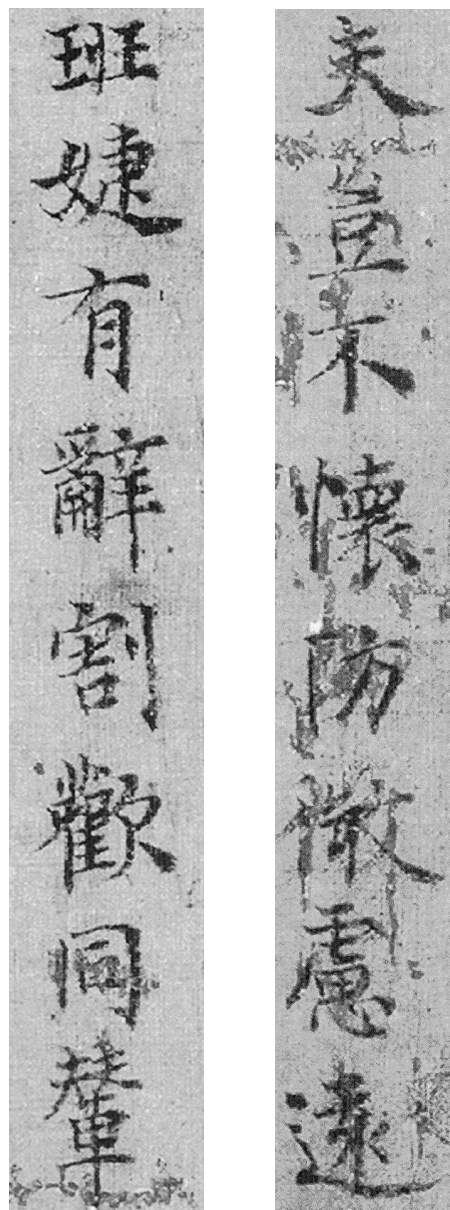 班婕有辭割歡同輦
夫豈不懷防微慮遠